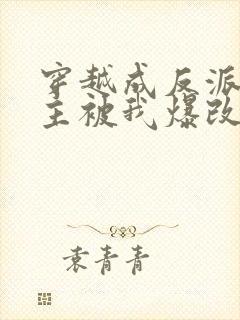 穿越成反派
主被我爆改
袁青青